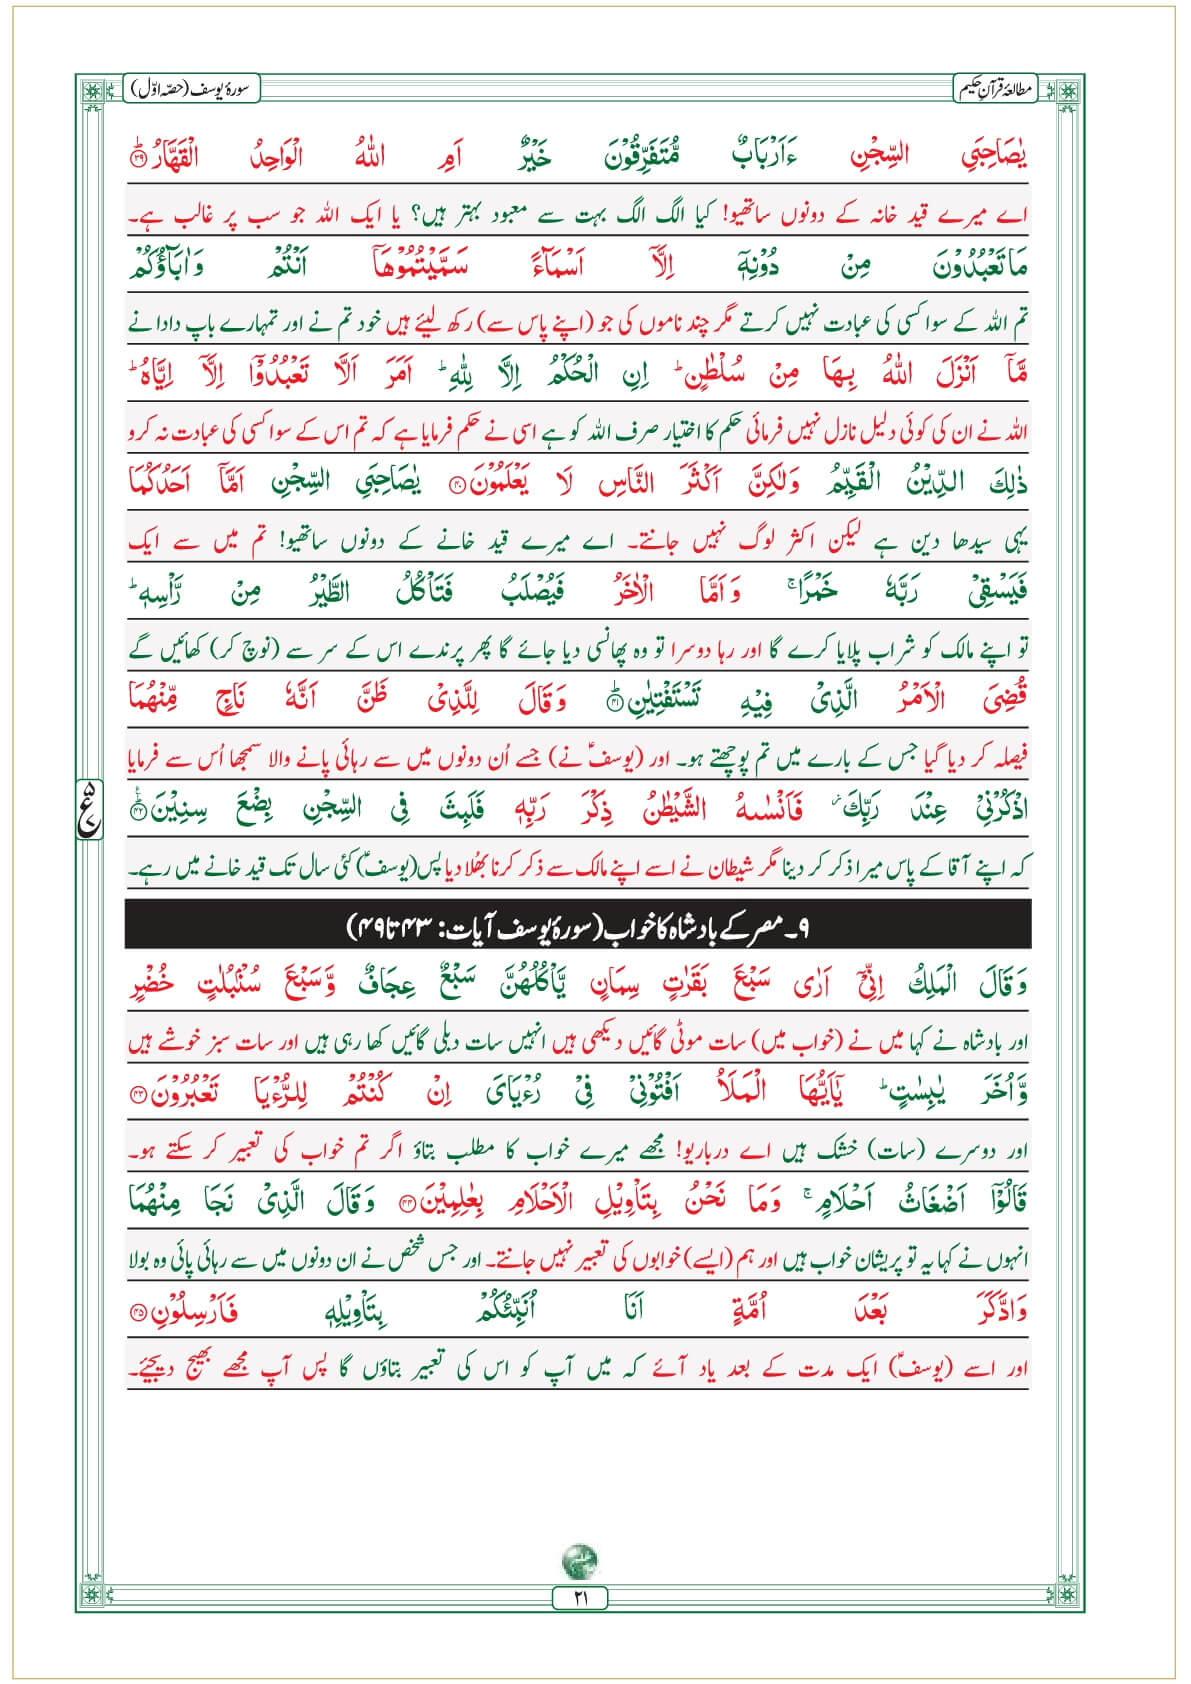 مطالعۂ قرآنِ حکیم
سورۂ یوسف (حصّہ اوّل)
یٰصَاحِبَیِ السِّجْنِ ءَاَرْبَابٌ مُّتَفَرِّقُوْنَ خَیْرٌ اَمِ اللّٰهُ الْوَاحِدُ الْقَهَّارُؕ۝۳۹
اے میرے قید خانہ کے دونوں ساتھیو! کیا الگ الگ بہت سے معبود بہتر ہیں؟ یا ایک اللہ جو سب پر غالب ہے۔
مَا تَعْبُدُوْنَ مِنْ دُوْنِهٖۤ اِلَّاۤ اَسْمَآءً سَمَّیْتُمُوْهَاۤ اَنْتُمْ وَ اٰبَآؤُكُمْ
تم اللہ کے سوا کسی کی عبادت نہیں کرتے مگر چند ناموں کی جو (اپنے پاس سے) رکھ لیئے ہیں خود تم نے اور تمہارے باپ دادا نے
مَّاۤ اَنْزَلَ اللّٰهُ بِهَا مِنْ سُلْطٰنٍؕ اِنِ الْحُكْمُ اِلَّا لِلّٰهِؕ اَمَرَ اَلَّا تَعْبُدُوْۤا اِلَّاۤ اِیَّاهُؕ
اللہ نے ان کی کوئی دلیل نازل نہیں فرمائی حکم کا اختیار صرف اللہ کو ہے اسی نے حکم فرمایا ہے کہ تم اس کے سوا کسی کی عبادت نہ کرو
ذٰلِكَ الدِّیْنُ الْقَیِّمُ وَ لٰكِنَّ اَكْثَرَ النَّاسِ لَا یَعْلَمُوْنَ۝۴۰ یٰصَاحِبَیِ السِّجْنِ اَمَّاۤ اَحَدُكُمَا
یہی سیدھا دین ہے لیکن اکثر لوگ نہیں جانتے۔ اے میرے قید خانے کے دونوں ساتھیو! تم میں سے ایک
فَیَسْقِیْ رَبَّهٗ خَمْرًاۚ وَ اَمَّا الْاٰخَرُ فَیُصْلَبُ فَتَاْكُلُ الطَّیْرُ مِنْ رَّاْسِهٖؕ
تو اپنے مالک کو شراب پلایا کرے گا اور رہا دوسرا تو وہ پھانسی دیا جائے گا پھر پرندے اس کے سر سے (نوچ کر) کھائیں گے
قُضِیَ الْاَمْرُ الَّذِیْ فِیْهِ تَسْتَفْتِیٰنِؕ۝۴۱ وَ قَالَ لِلَّذِیْ ظَنَّ اَنَّهٗ نَاجٍ مِّنْهُمَا
فیصلہ کر دیا گیا جس کے بارے میں تم پوچھتے ہو۔ اور (یوسفؑ نے) جسے اُن دونوں میں سے رہائی پانے والا سمجھا اُس سے فرمایا
اذْكُرْنِیْ عِنْدَ رَبِّكَ٘ فَاَنْسٰىهُ الشَّیْطٰنُ ذِكْرَ رَبِّهٖ فَلَبِثَ فِی السِّجْنِ بِضْعَ سِنِیْنَؕ۠۝۴۲
ع
کہ اپنے آقا کے پاس میرا ذکر کر دینا مگر شیطان نے اسے اپنے مالک سے ذکر کرنا بھُلا دیا پس (یوسفؑ) کئی سال تک قید خانے میں رہے۔
۹۔ مصر کے بادشاہ کا خواب (سورۂ یوسف آیات: ۴۳ تا ۴۹)
وَ قَالَ الْمَلِكُ اِنِّیْۤ اَرٰى سَبْعَ بَقَرٰتٍ سِمَانٍ یَّاْكُلُهُنَّ سَبْعٌ عِجَافٌ وَّ سَبْعَ سُنْۢبُلٰتٍ خُضْرٍ
اور بادشاہ نے کہا میں نے (خواب میں) سات موٹی گائیں دیکھی ہیں انہیں سات دبلی گائیں کھا رہی ہیں اور سات سبز خوشے ہیں
وَّ اُخَرَ یٰبِسٰتٍؕ یٰۤاَیُّهَا الْمَلَاُ اَفْتُوْنِیْ فِیْ رُءْیَایَ اِنْ كُنْتُمْ لِلرُّءْیَا تَعْبُرُوْنَ۝۴۳
اور دوسرے (سات) خشک ہیں اے درباریو! مجھے میرے خواب کا مطلب بتاؤ اگر تم خواب کی تعبیر کر سکتے ہو۔
قَالُوْۤا اَضْغَاثُ اَحْلَامٍۚ وَ مَا نَحْنُ بِتَاْوِیْلِ الْاَحْلَامِ بِعٰلِمِیْنَ۝۴۴ وَ قَالَ الَّذِیْ نَجَا مِنْهُمَا
انہوں نے کہا یہ تو پریشان خواب ہیں اور ہم (ایسے) خوابوں کی تعبیر نہیں جانتے۔ اور جس شخص نے ان دونوں میں سے رہائی پائی وہ بولا
وَ ادَّكَرَ بَعْدَ اُمَّةٍ اَنَا اُنَبِّئُكُمْ بِتَاْوِیْلِهٖ فَاَرْسِلُوْنِ۝۴۵
اور اسے (یوسفؑ) ایک مدت کے بعد یاد آئے کہ میں آپ کو اس کی تعبیر بتاؤں گا پس آپ مجھے بھیج دیجیئے۔
۲۱